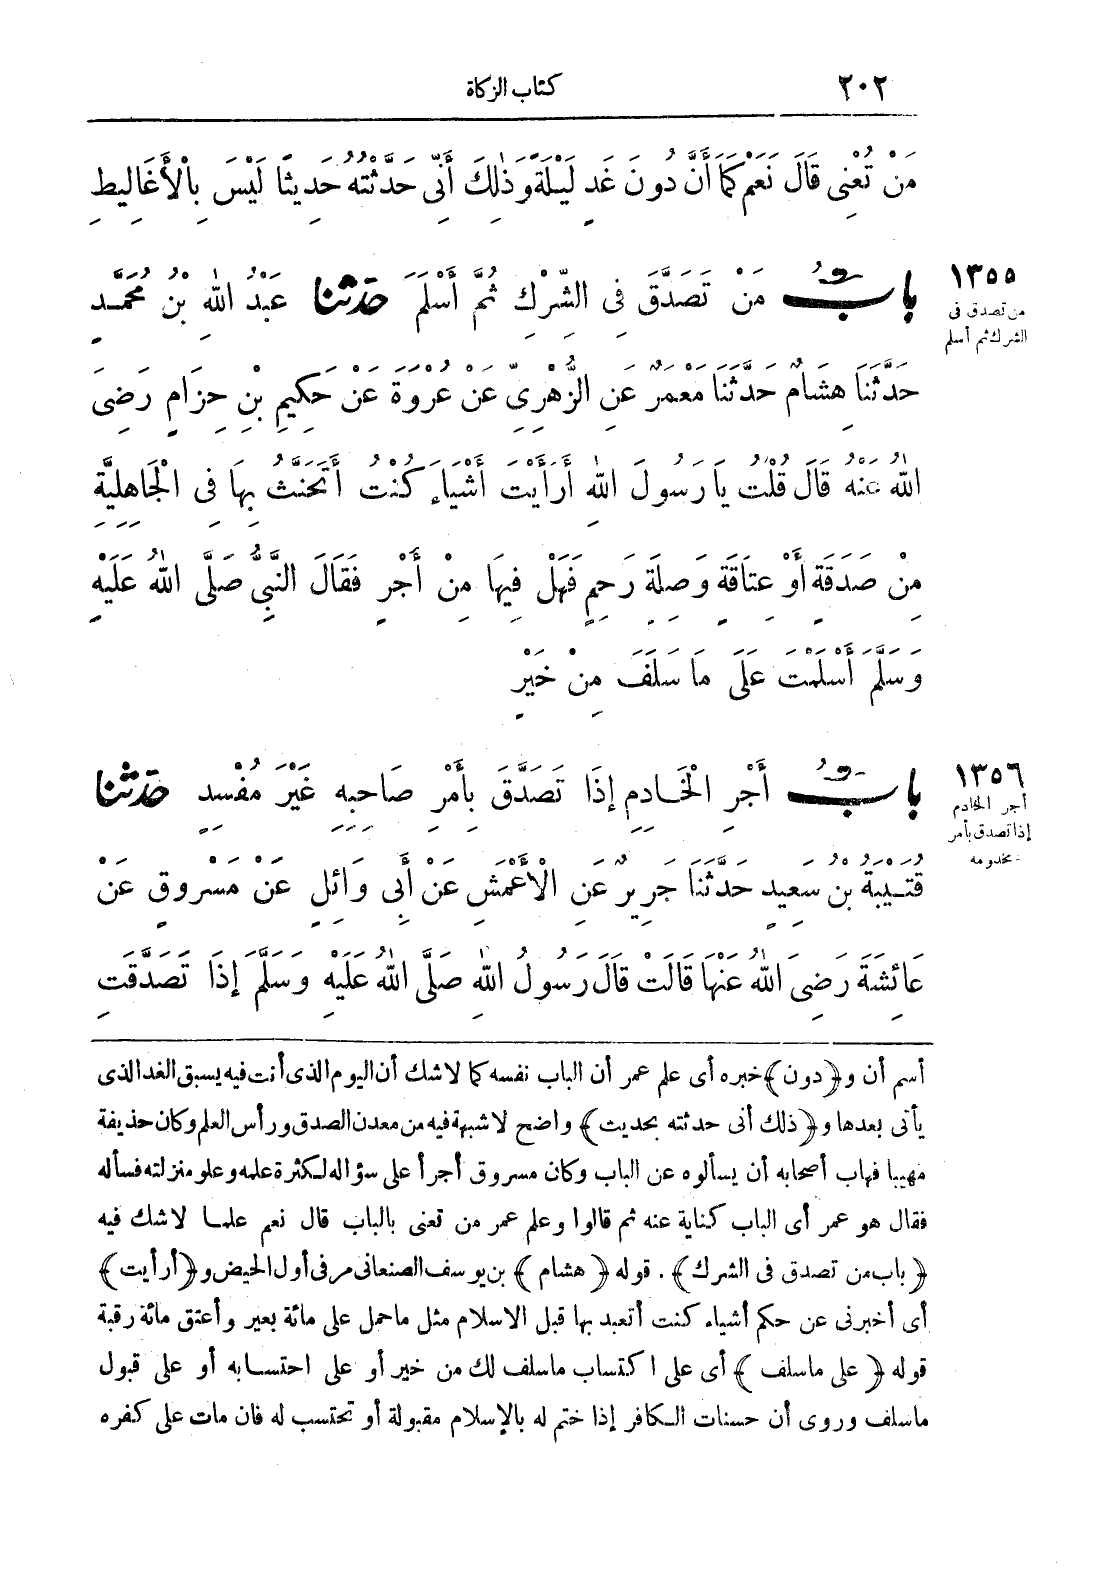 ٢٠٢ كتاب الزكاة
مَنْ تُعْنِى قَالَ نَعَمْ كَمَا أَنَّ دُونَ غَدٍ لَيْلَةً وَذٰلِكَ أَنِّى حَدَّثْتُهُ حَدِيثًا لَيْسَ بِالْأَغَالِيطِ
١٣٥٥
من تصدق فى
الشرك ثم أسلم
بابُ مَنْ تَصَدَّقَ فِى الشِّرْكِ ثُمَّ أَسْلَمَ حَدَّثَنَا عَبْدُ اللهِ بْنُ مُحَمَّدٍ
حَدَّثَنَا هِشَامٌ حَدَّثَنَا مَعْمَرٌ عَنِ الزُّهْرِىِّ عَنْ عُرْوَةَ عَنْ حَكِيمِ بْنِ حِزَامٍ رَضِىَ
اللهُ عَنْهُ قَالَ قُلْتُ يَا رَسُولَ اللهِ أَرَأَيْتَ أَشْيَاءَ كُنْتُ أَتَحَنَّثُ بِهَا فِى الْجَاهِلِيَّةِ
مِنْ صَدَقَةٍ أَوْ عِتَاقَةٍ وَصِلَةِ رَحِمٍ فَهَلْ فِيهَا مِنْ أَجْرٍ فَقَالَ النَّبِىُّ صَلَّى اللهُ عَلَيْهِ
وَسَلَّمَ أَسْلَمْتَ عَلَى مَا سَلَفَ مِنْ خَيْرٍ
١٣٥٦
أجر الخادم
إذا تصدق بأمر
مخدومه
بابُ أَجْرِ الْخَادِمِ إِذَا تَصَدَّقَ بِأَمْرِ صَاحِبِهِ غَيْرَ مُفْسِدٍ حَدَّثَنَا
قُتَيْبَةُ بْنُ سَعِيدٍ حَدَّثَنَا جَرِيرٌ عَنِ الْأَعْمَشِ عَنْ أَبِى وَائِلٍ عَنْ مَسْرُوقٍ عَنْ
عَائِشَةَ رَضِىَ اللهُ عَنْهَا قَالَتْ قَالَ رَسُولُ اللهِ صَلَّى اللهُ عَلَيْهِ وَسَلَّمَ إِذَا تَصَدَّقَتِ
أسم أن و﴿دون﴾ خبره أى علم عمر أن الباب نفسه كما لا شك أن اليوم الذى أنت فيه يسبق الغد الذى
يأتى بعدها و﴿ذلك أنى حدثته بحديث﴾ واضح لا شبهة فيه من معدن الصدق ورأس العلم وكان حذيفة
مهيبا فهاب أصحابه أن يسألوه عن الباب وكان مسروق أجرأ على سؤاله لكثرة علمه وعلو منزلته فسأله
فقال هو عمر أى الباب كناية عنه ثم قالوا وعلم عمر من تعنى بالباب قال نعم علما لا شك فيه
﴿باب من تصدق فى الشرك﴾. قوله ﴿هشام﴾ بن يوسف الصنعانى مر فى أول الحيض و﴿أرأيت﴾
أى أخبرنى عن حكم أشياء كنت أتعبد بها قبل الاسلام مثل ما حمل على مائة بعير وأعتق مائة رقبة
قوله ﴿على ماسلف﴾ أى على اكتساب ماسلف لك من خير أو على احتسابه أو على قبول
ماسلف وروى أن حسنات الكافر إذا ختم له بالإسلام مقبولة أو تحتسب له فان مات على كفره